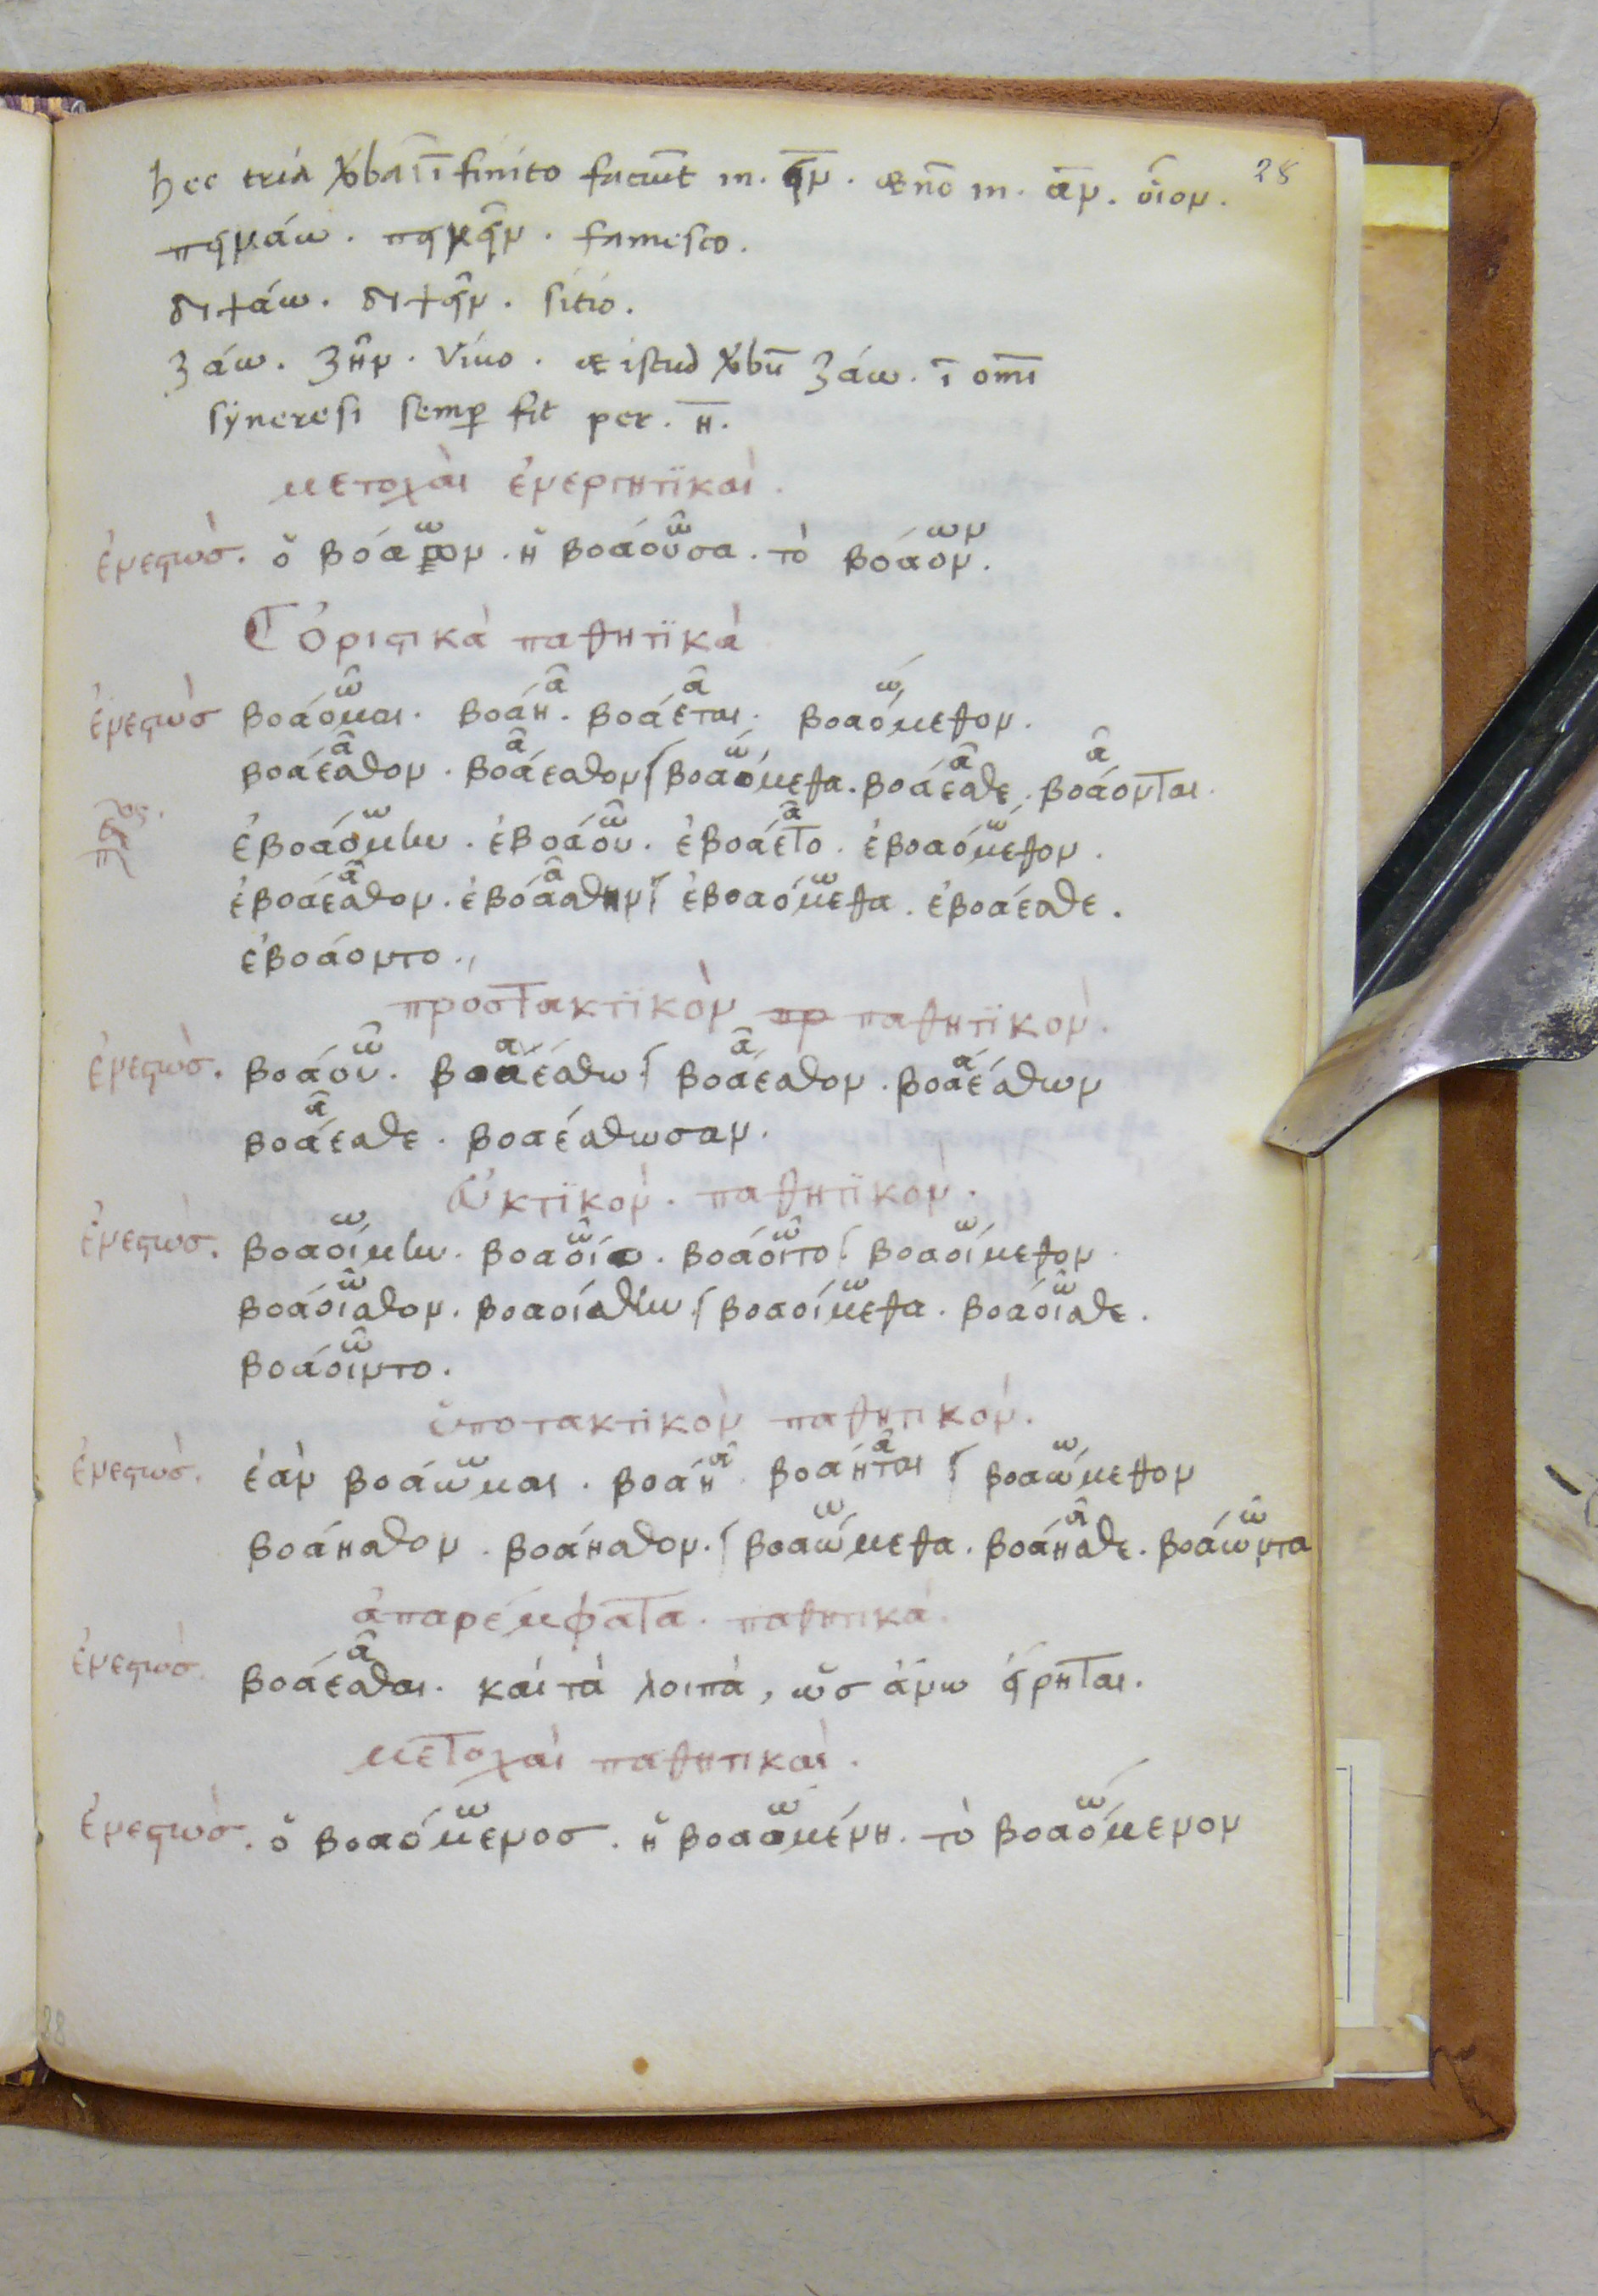 28
hec tria v̄ba ī ī finito faciūt in. ειν. et nō in. αν. οἷον.
πεινάω. πεινεῖν. famesco.
διψάω. διψεῖν. sitio.
ζάω. ζῆν. vivo. et istud v̄bū ζάω. ī omī
syneresi semp̄ fit per. η.
μετοχαὶ ἐνεργητϊκαί.
ἐνεστὼσ. ὁ βοάων. ἡ βοάουσα. τὸ βόαον.
ὁριστικὰ παθητϊκὰ
ἐνεστὼσ βοάομαι. βοάη. βοάεται. βοαόμεθον.
βοάεσθον. βοάεσθον βοαόμεθα. βοάεσθε. βοάονται.
ἐβοαόμην. ἐβοάου. ἐβοάετο. ἐβοαόμεθον.
ἐβοάεσθον. ἐβοάσθην ἐβοαόμεθα. ἐβοάεσθε.
ἐβοάοντο.
προστακτϊκὸν πρ παθητϊκόν.
ἐνεστὼσ. βοάου. βοαέσθω βοάεσθον. βοαέσθων
βοάεσθε. βοαέσθωσαν.
εὐκτϊκὸν. παθητϊκὸν.
ἐνεστὼσ. βοαοίμην. βοαοίο. βοάοιτο βοαοίμεθον
βοάοισθον. βοαοίσθην βοαοίμεθα. βοάοισθε.
βοάοιντο.
ὑποτακτικὸν παθητικόν.
ἐνεστὼσ. ἐὰν βοάωμαι. βοάη. βοάηται βοαώμεθον
βοάησθον. βοάησθον. βοαώμεθα. βοάησθε. βοάωντα
ἀπαρέμφατα. παθητικά.
ἐνεστὼσ. βοάεσθαι. καὶ τὰ λοιπὰ, ὡσ ἄνω εἴρηται.
μετοχαὶ παθητικαὶ.
ἐνεστὼσ. ὁ βοαόμενοσ. ἡ βοαομένη. τὸ βοαόμενον